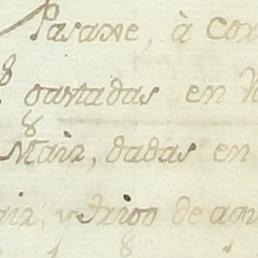 Pasane, à cor
cartadas en
Maiz, dadas en
aiz, y trigo de agu